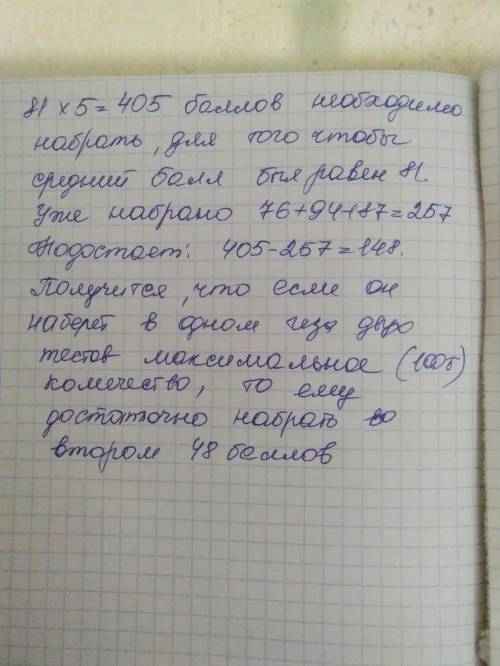 81 x 5 = 405 баллов необходимо
набрать, для того чтобы
средний балл был равен 81.
Уже набрано 76+94+87=257
Недостает: 405-257=148.
Получится, что если он
наберет в одном из двух
тестов максимальное (100б)
количество, то ему
достаточно набрать во
втором 48 баллов